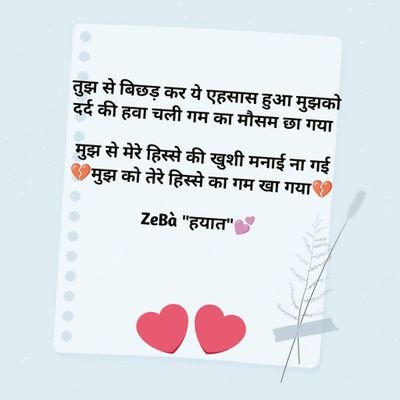 तुझ से बिछड़ कर ये एहसास हुआ मुझको
दर्द की हवा चली गम का मौसम छा गया
मुझ से मेरे हिस्से की खुशी मनाई ना गई
💔मुझ को तेरे हिस्से का गम खा गया💔
ZeBà "हयात"💕